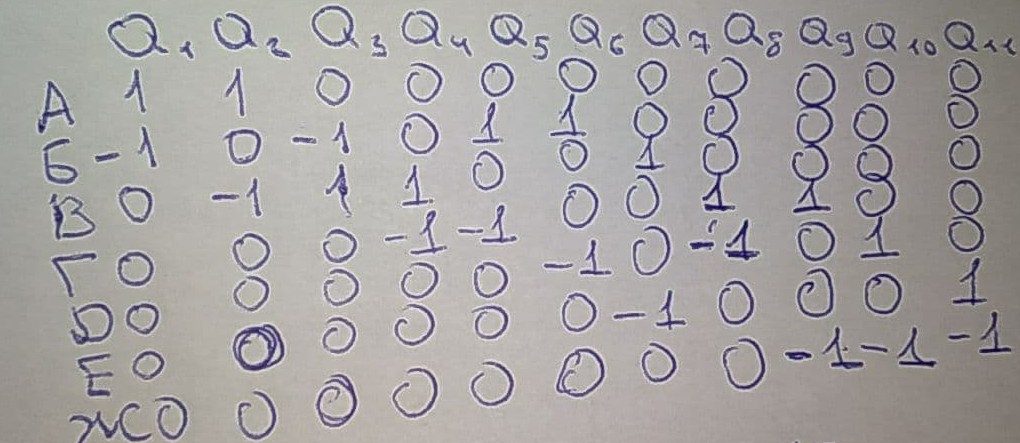 Q₁ Q₂ Q₃ Q₄ Q₅ Q₆ Q₇ Q₈ Q₉ Q₁₀ Q₁₁
А 1 1 0 0 0 0 0 0 0 0 0
Б -1 0 -1 0 1 1 0 0 0 0 0
В 0 -1 1 1 0 0 1 0 0 0 0
Г 0 0 0 -1 -1 0 0 1 1 0 0
Д 0 0 0 0 0 -1 0 -1 0 1 0
Е 0 0 0 0 0 0 -1 0 0 0 1
Ж 0 0 0 0 0 0 0 0 -1 -1 -1